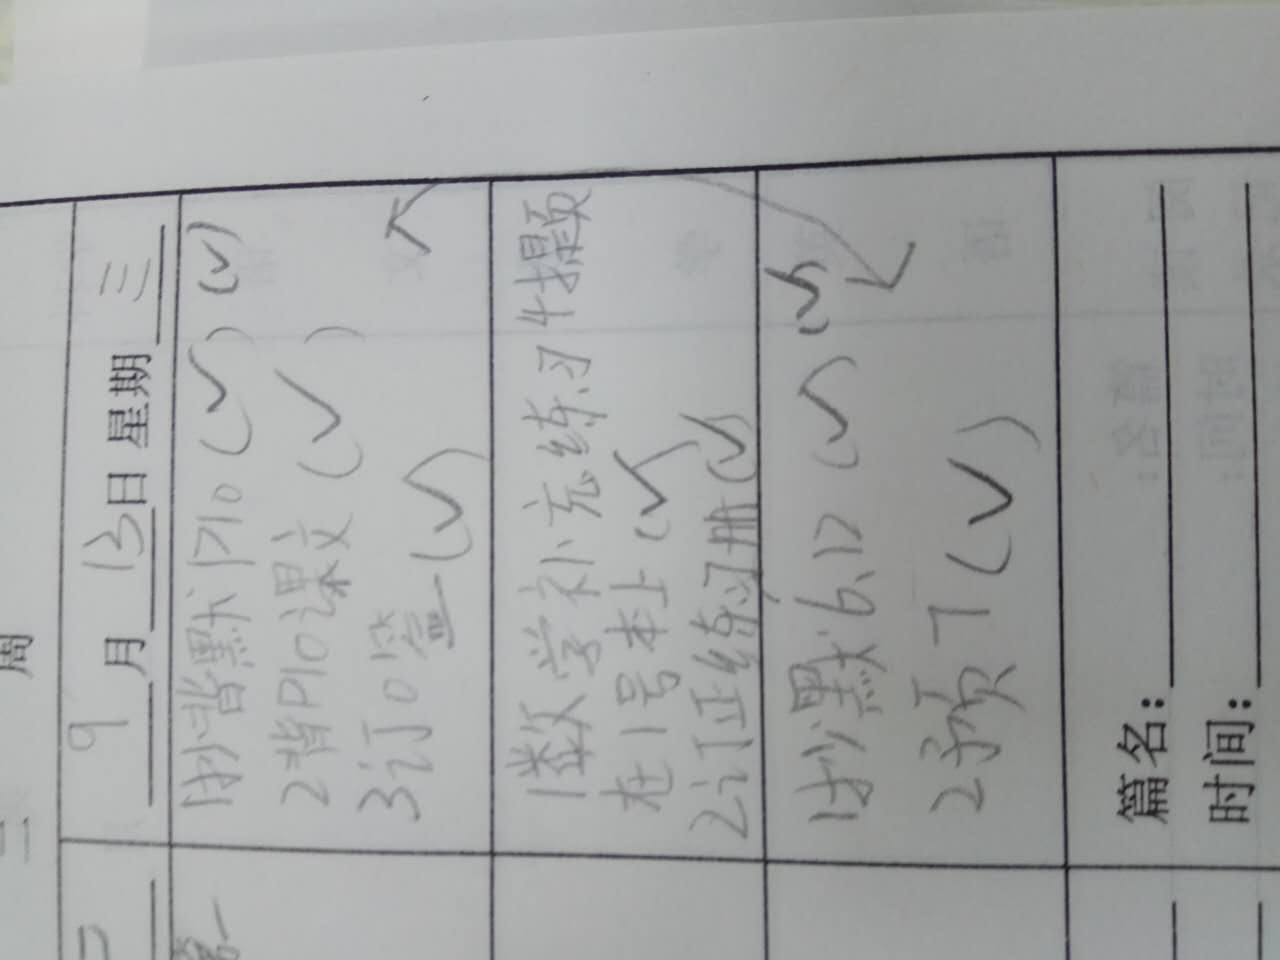 二 周
9月13日星期三
1抄背默P10(√)(√)
2背P10课文(√)
3订0签(√)
1数学补充练习4提题
在1号本上(√)
2订正练习册(√)
1抄默6.17(√)(√)
2预7(√)
篇名:
时间:
二